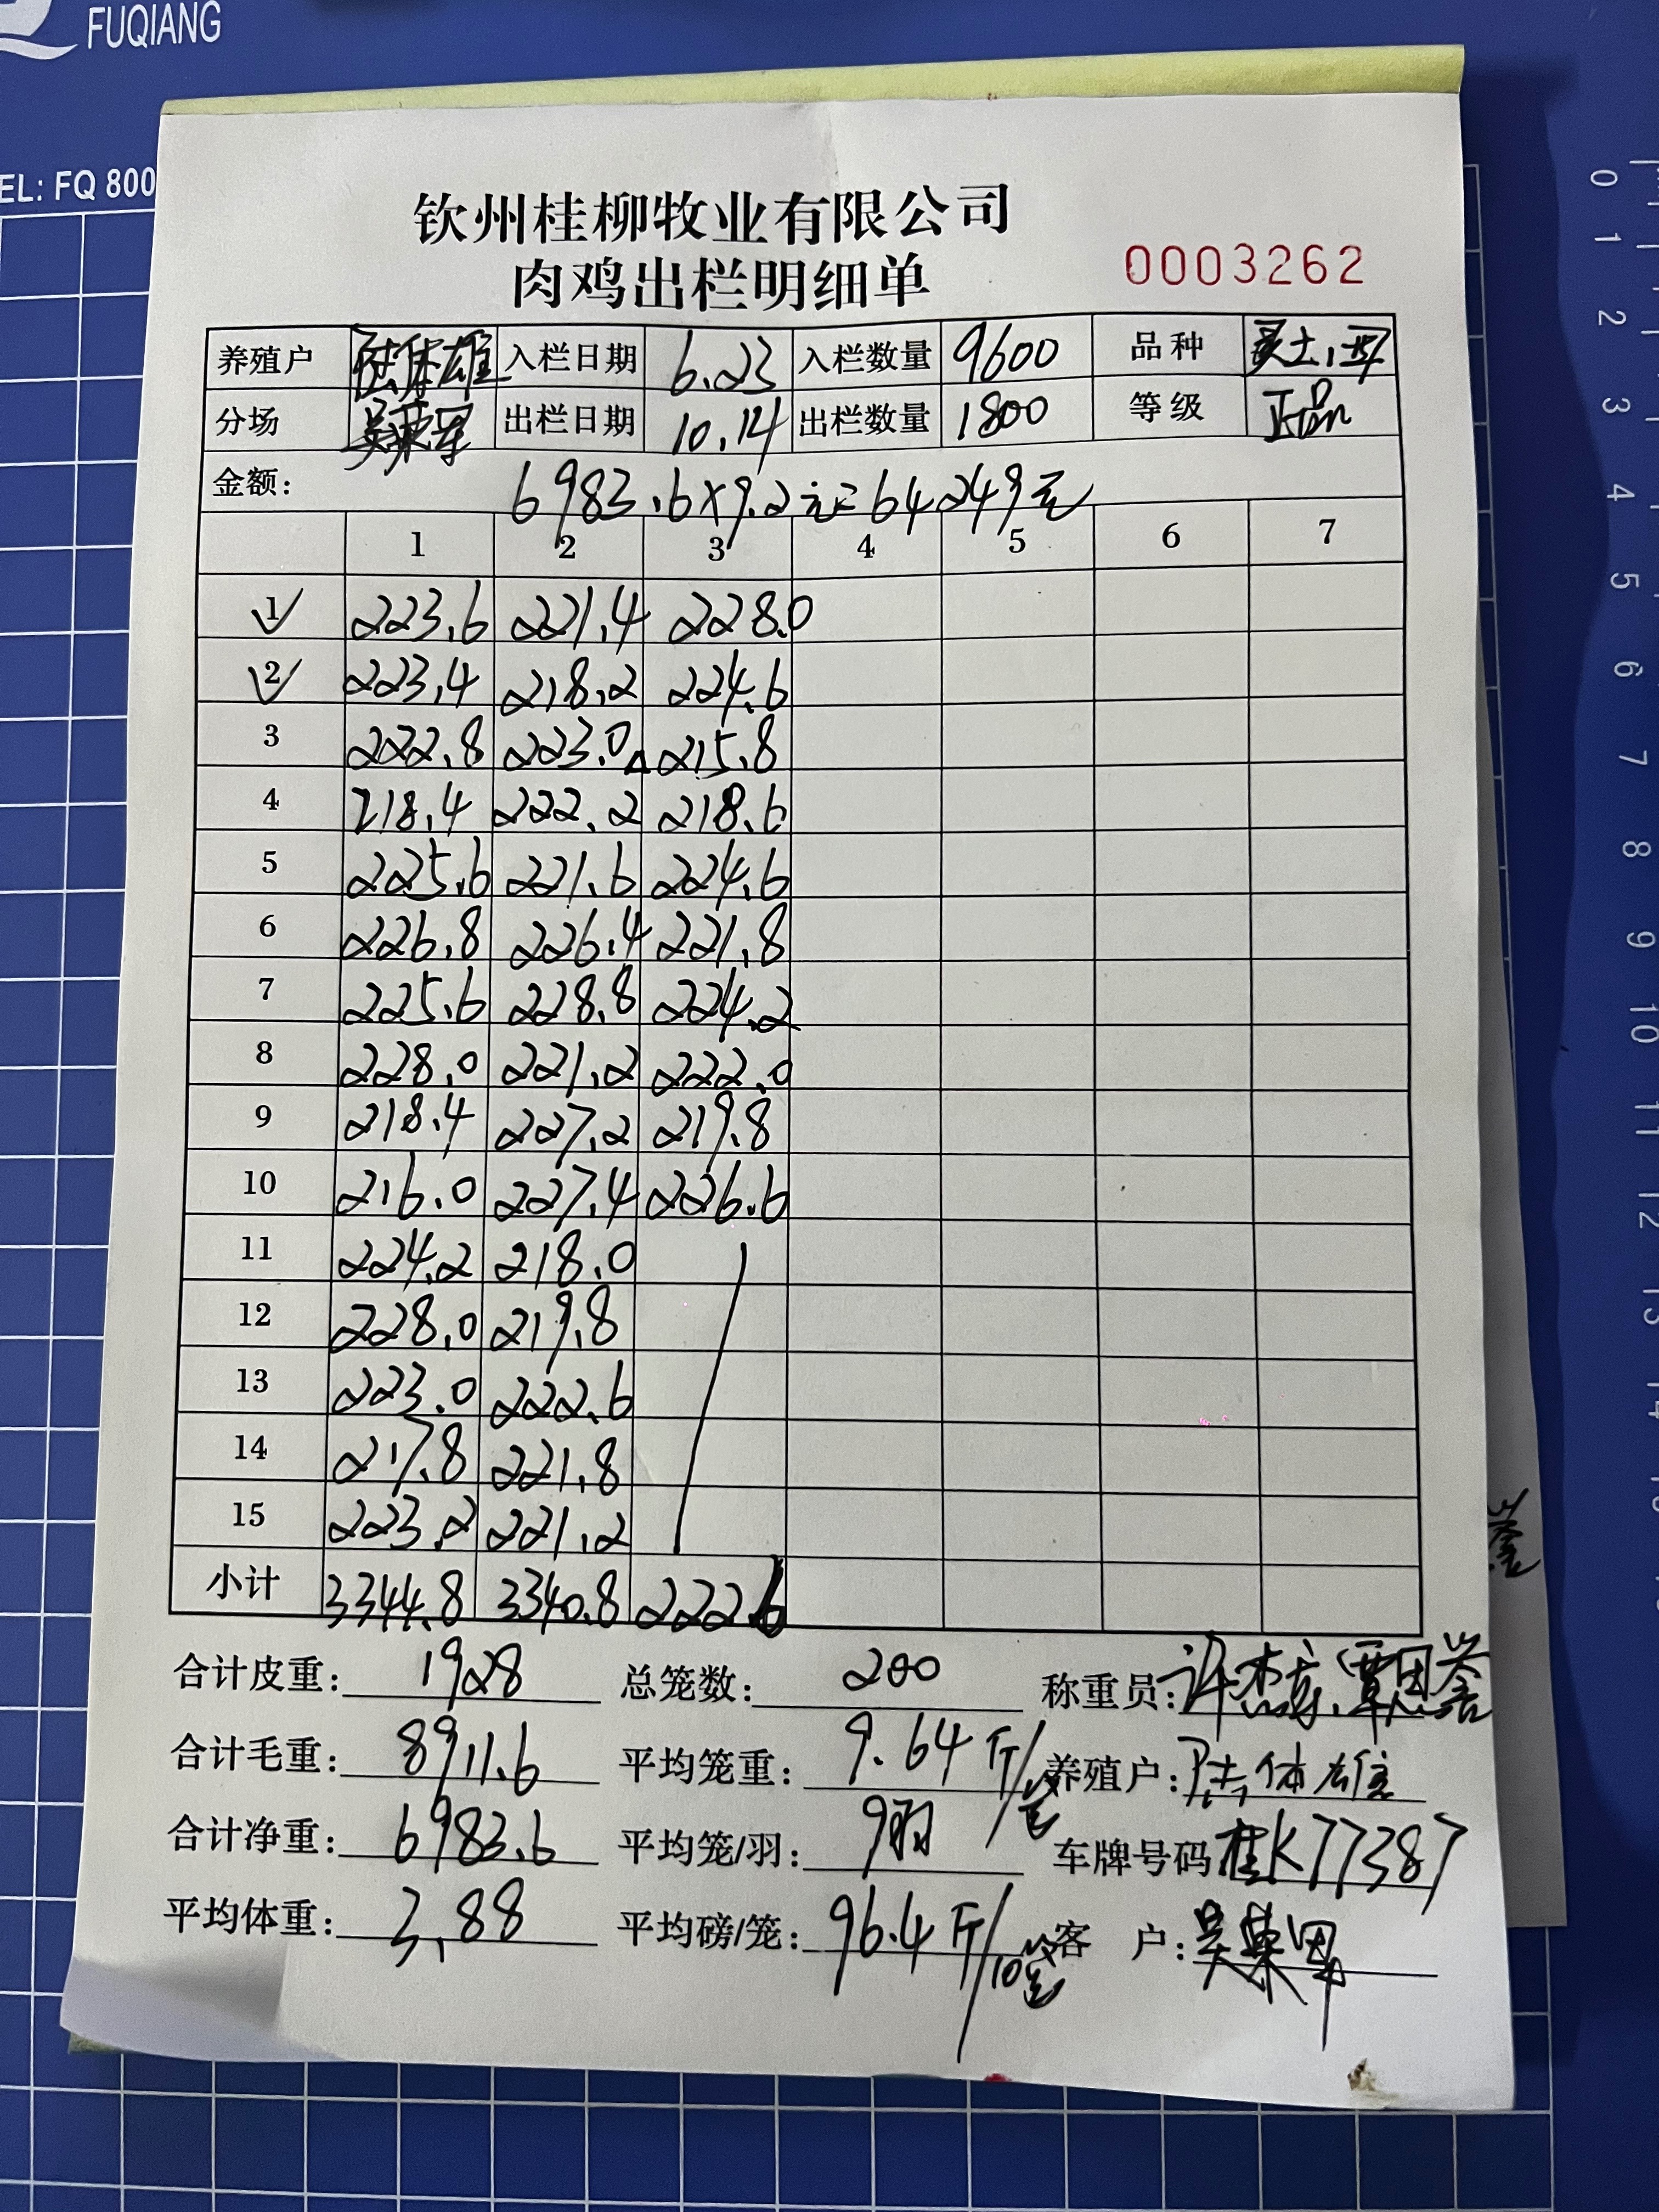 FUQIANG
EL: FQ 800
钦州桂柳牧业有限公司
肉鸡出栏明细单
0003262
养殖户 陆体雄 入栏日期 6.23 入栏数量 9600 品种
分场 出栏日期 10.14 出栏数量 1800 等级 正品
金额: 6983.6×9.2元=64249元
1 2 3 4 5 6 7
1 223.6 221.4 228.0
2 223.4 218.2 224.6
3 222.8 223.0 215.8
4 218.4 222.2 218.6
5 225.6 221.6 224.6
6 226.8 226.4 221.8
7 225.6 228.8 224.2
8 228.0 221.2 222.0
9 218.4 227.2 219.8
10 216.0 227.4 226.6
11 224.2 218.0
12 228.0 219.8
13 223.0 222.6
14 217.8 221.8
15 223.2 221.2
小计 3344.8 3340.8 2226
合计皮重: 1928 总笼数: 200 称重员:
合计毛重: 8911.6 平均笼重: 9.64斤/笼 养殖户: 陆体雄
合计净重: 6983.6 平均笼/羽: 9羽 车牌号码 桂K77387
平均体重: 3.88 平均磅/笼: 96.4斤/10笼 客 户:
0
1
2
3
4
5
6
7
8
9
10
11
12
13
14